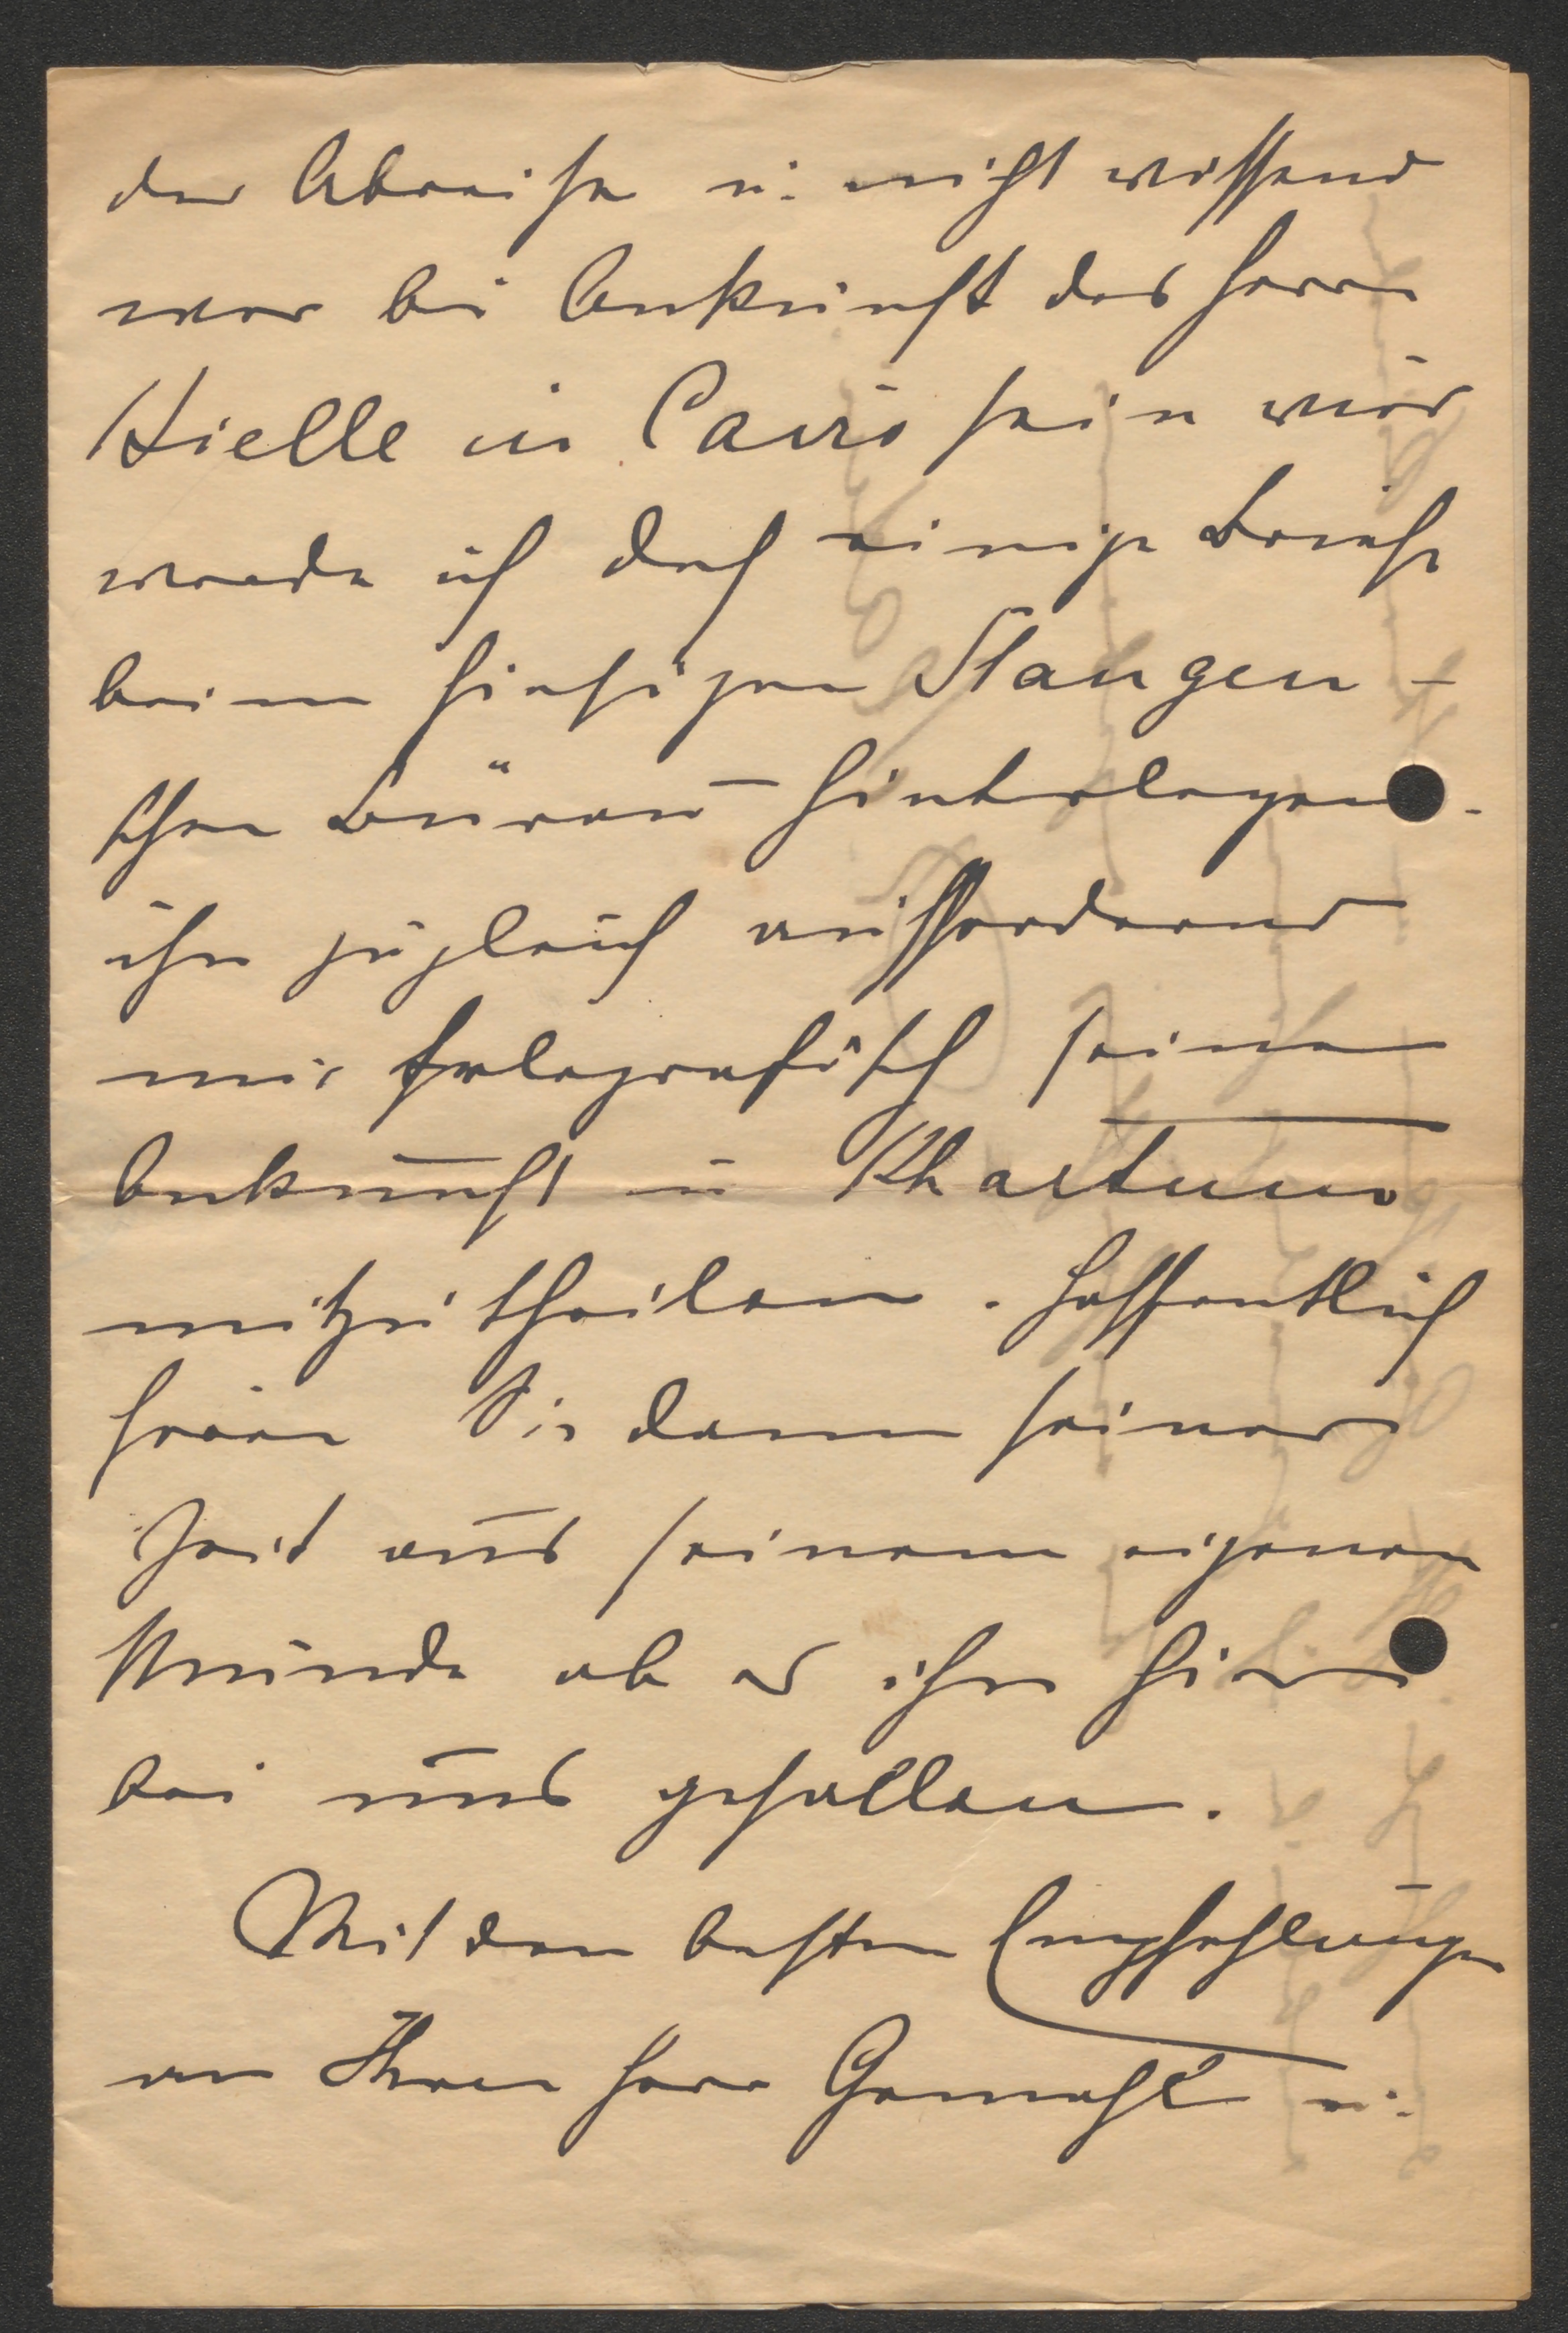 der Abreise u. nicht wissend
wer bei Ankunft des Herrn
Hielle in Cairo sein wird
werde ich doch einige Briefe
beim hiesigen Stangen-
schen Büreau hinterlegen.
ihn zugleich auffordernd
mir telegrafisch seine
Ankunft in Khartum
mitzutheilen. Hoffentlich
hören Sie dann seiner
Zeit aus seinem eigenen
Munde ob es ihm hier
bei uns gefallen.
Mit den besten Empfehlungen
an Ihren Herr Gemahl u.